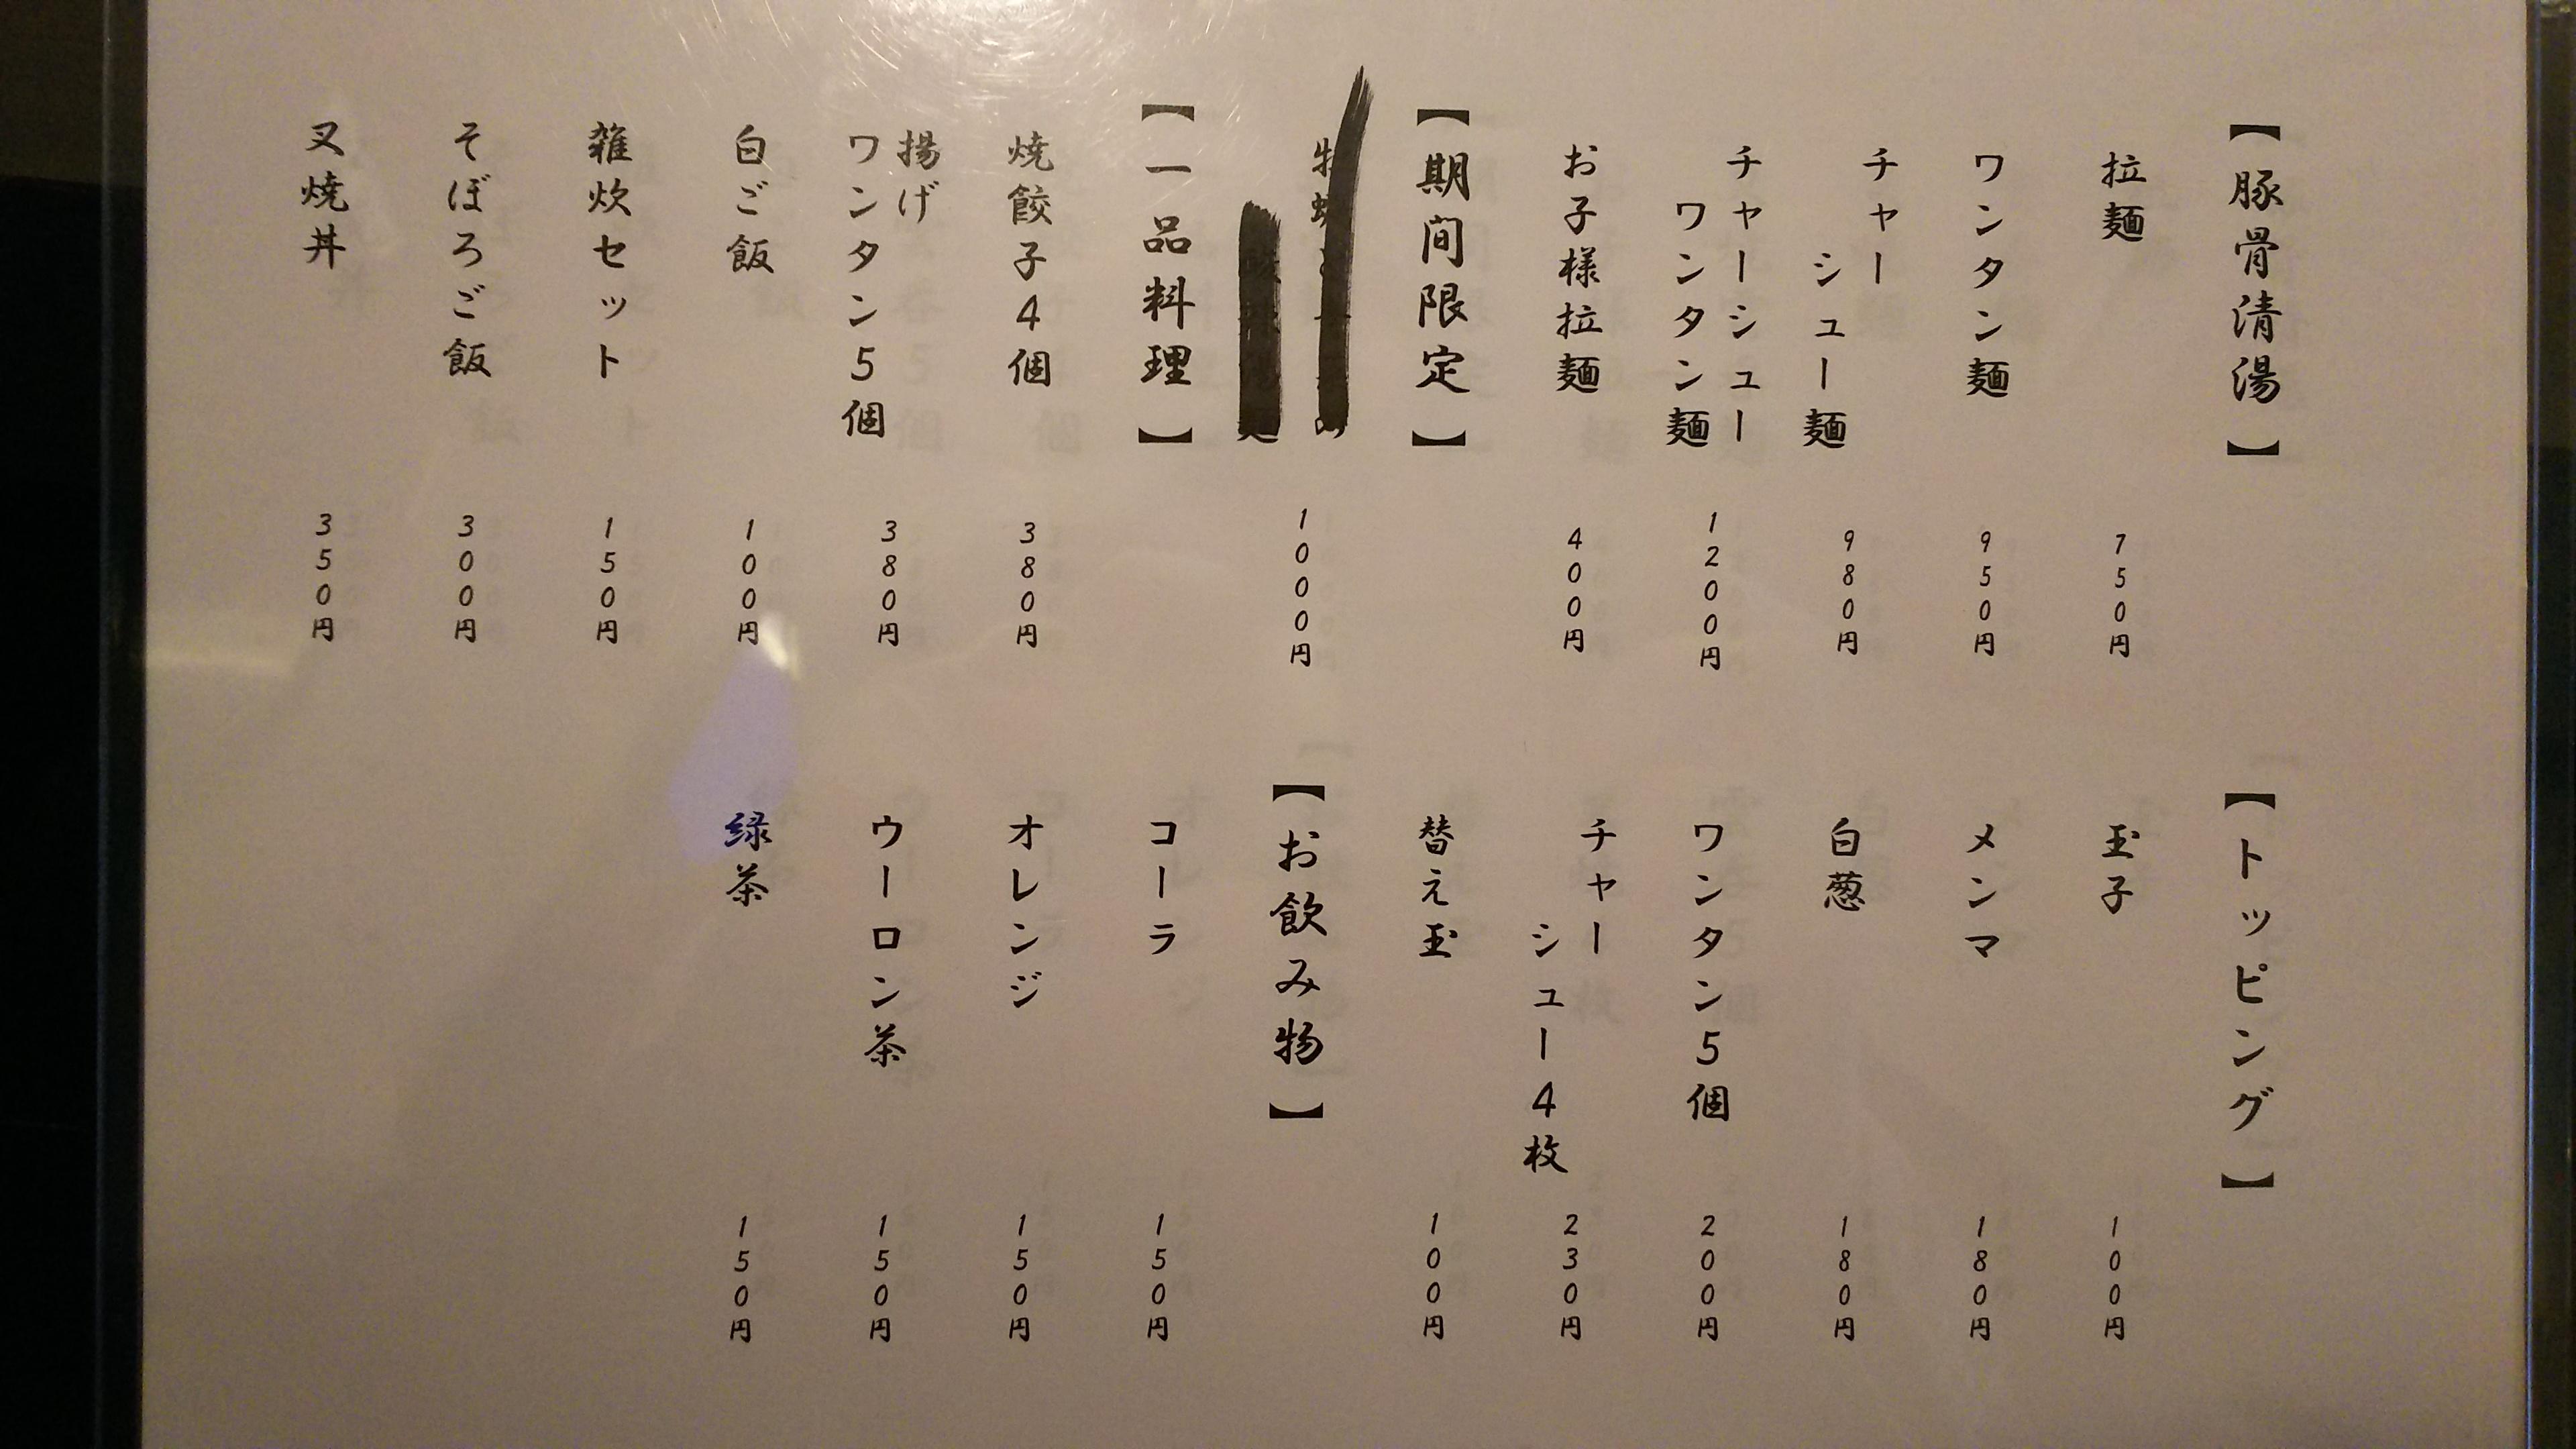 【豚骨清湯】
拉麺
750円
ワンタン麺
950円
チャー
シュー麺
980円
チャーシュー
ワンタン麺
1200円
お子様拉麺
400円
【期間限定】
1000円
【一品料理】
焼餃子4個
380円
揚げ
ワンタン5個
380円
白ご飯
100円
雑炊セット
150円
そぼろご飯
300円
叉焼丼
350円
【トッピング】
玉子
100円
メンマ
180円
白葱
180円
ワンタン5個
200円
チャー
シュー4枚
230円
替え玉
100円
【お飲み物】
コーラ
150円
オレンジ
150円
ウーロン茶
150円
緑茶
150円